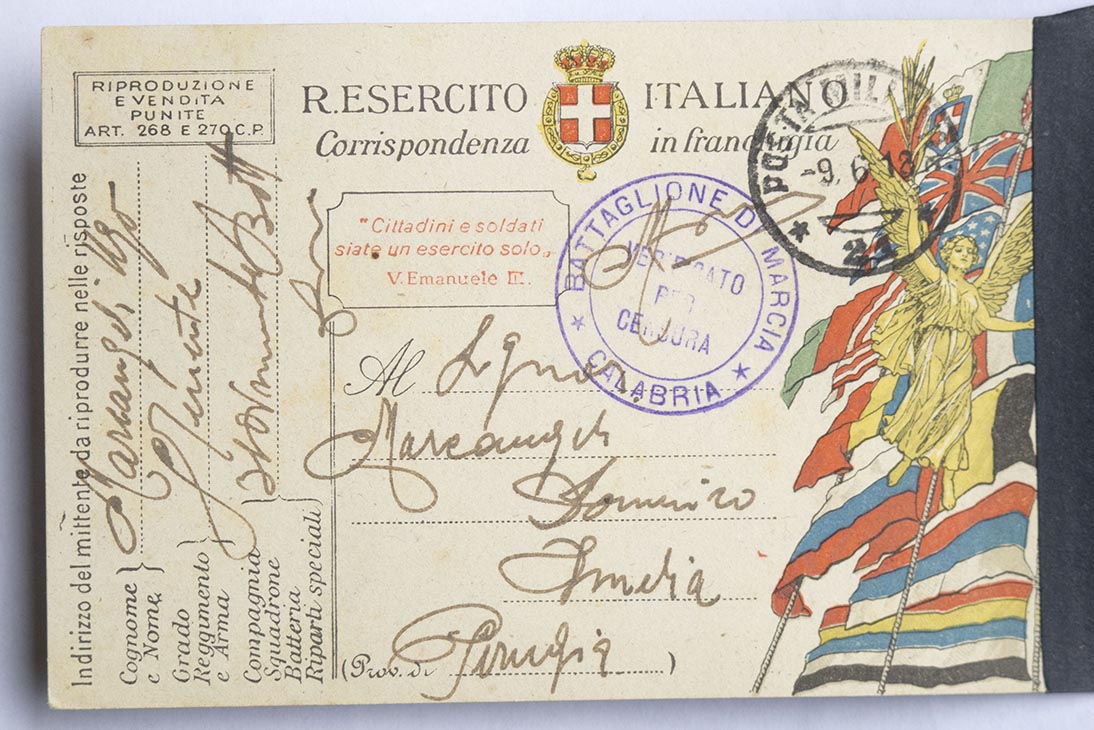 RIPRODUZIONE
E VENDITA
PUNITE
ART. 268 E 270 C.P.
R. ESERCITO ITALIANO
Corrispondenza in franchigia
"Cittadini e soldati
siate un esercito solo„
V. Emanuele III.
BATTAGLIONE DI MARCIA
VERIFICATO
PER
CENSURA
★ CALABRIA ★
-9. 6. 18
21
Al Signor
Marcangeli
Domenico
Amelia
(Prov. di Perugia)
Indirizzo del mittente da riprodurre nelle risposte
Cognome
e Nome
Marcangeli Ugo
Grado
Reggimento
e Arma
Compagnia
Squadrone
Batteria
Riparti speciali